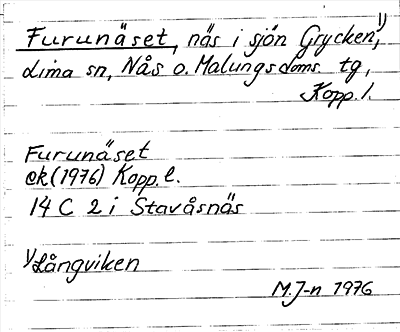 Furunäset, näs i sjön Grycken,¹⁾
Lima sn, Nås o. Malungs doms. tg,
Kopp. l.
Furunäset
ek (1976) Kopp. l.
14 C 2 i Stavåsnäs
¹⁾Långviken
M.J-n 1976